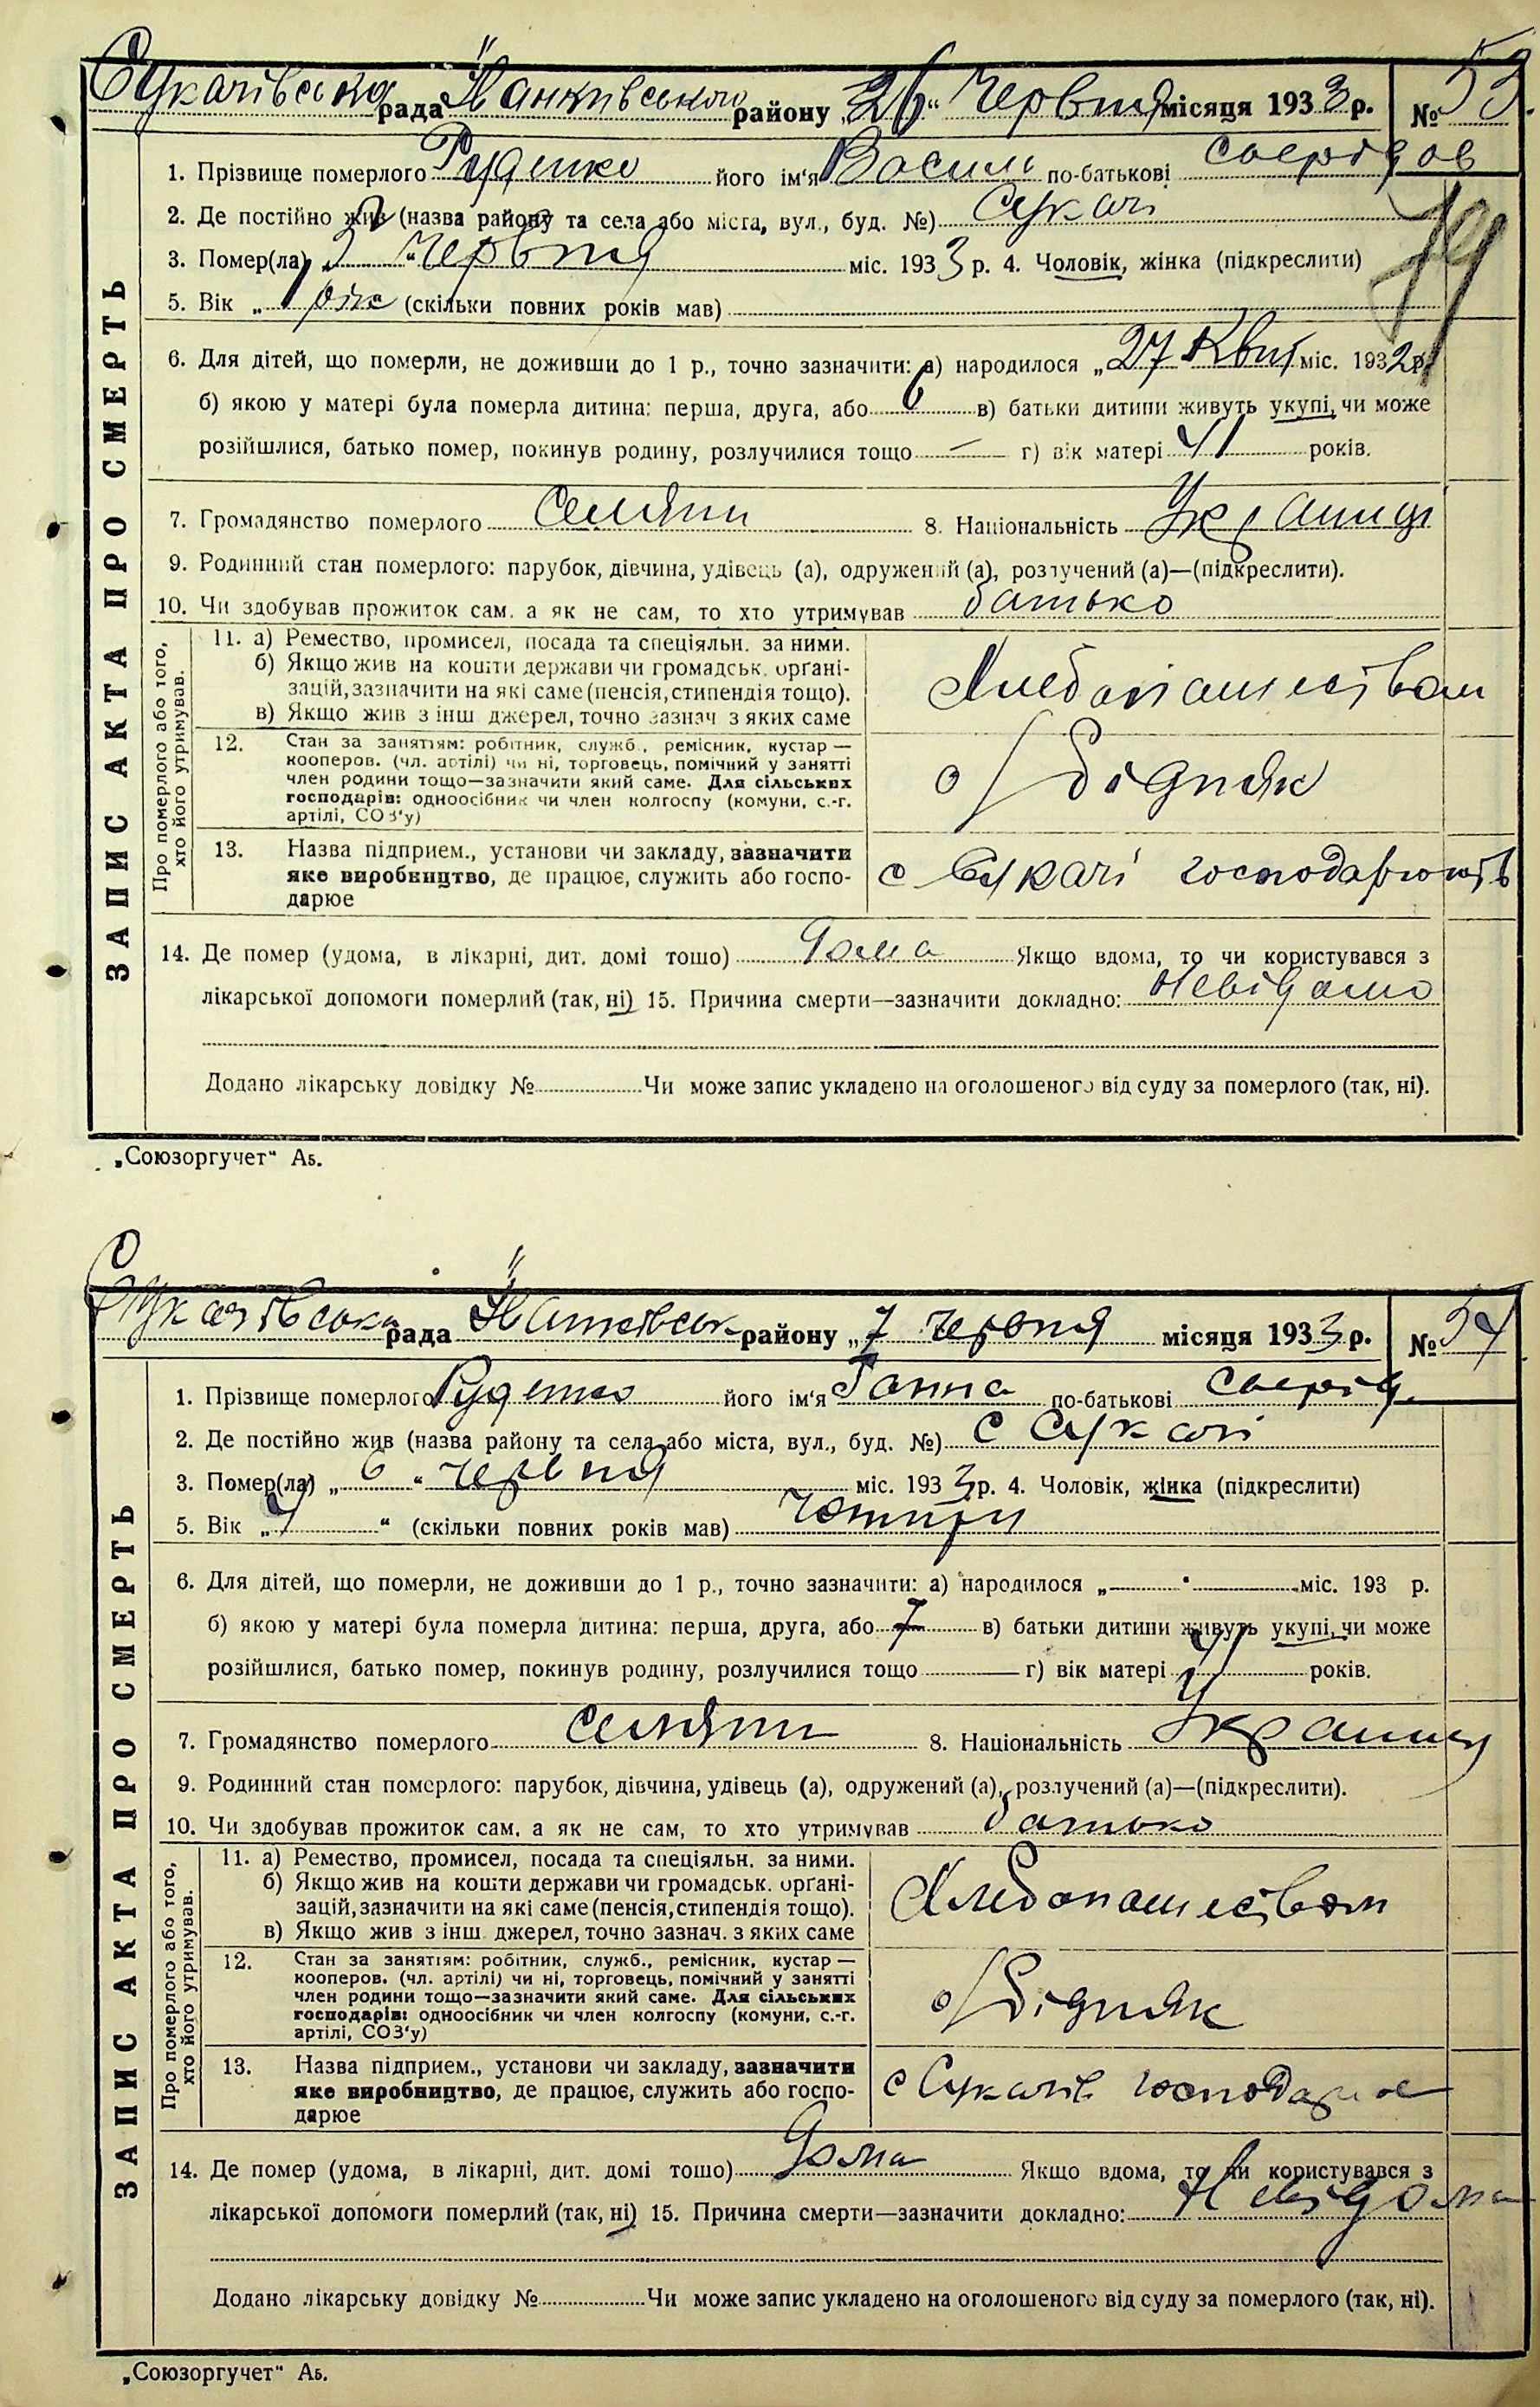 Сукачівська рада Іванківського району „26“ Червня місяця 1933 р. № 53
1. Прізвище померлого Руденко його ім'я Василь по-батькові Свиридов
2. Де постійно жив (назва району та села або міста, вул., буд. №) Сукачі
19
3. Помер(ла) „ “ Червня міс. 1933 р. 4. Чоловік, жінка (підкреслити)
5. Вік „1 рік (скільки повних років мав)
6. Для дітей, що померли, не доживши до 1 р., точно зазначити: а) народилося „27 Квіт міс. 1932 р.
б) якою у матері була померла дитина: перша, друга, або 6 в) батьки дитини живуть укупі, чи може
розійшлися, батько помер, покинув родину, розлучилися тощо — г) вік матері 41 років.
7. Громадянство померлого Селянин 8. Національність Українец
9. Родинний стан померлого: парубок, дівчина, удівець (а), одружений (а), розлучений (а)—(підкреслити).
10. Чи здобував прожиток сам, а як не сам, то хто утримував батько
ЗАПИС АКТА ПРО СМЕРТЬ
Про померлого або того, хто його утримував.
11. а) Ремество, промисел, посада та спеціяльн. за ними.
б) Якщо жив на кошти держави чи громадськ. орґані-
зацій, зазначити на які саме (пенсія, стипендія тощо).
в) Якщо жив з інш. джерел, точно зазнач. з яких саме
Хлебопашеством
12. Стан за заняттям: робітник, служб., ремісник, кустар —
кооперов. (чл. артілі) чи ні, торговець, помічний у занятті
член родини тощо—зазначити який саме. Для сільських
господарів: одноосібник чи член колгоспу (комуни, с.-г.
артілі, СОЗ'у)
о/бідняк
13. Назва підприєм., установи чи закладу, зазначити
яке виробництво, де працює, служить або госпо-
дарює
с Сукачі господарюють
14. Де помер (удома, в лікарні, дит. домі тощо) Дома Якщо вдома, то чи користувався з
лікарської допомоги померлий (так, ні) 15. Причина смерти—зазначити докладно: Невідомо
Додано лікарську довідку № Чи може запис укладено на оголошеного від суду за померлого (так, ні).
„Союзоргучет“ А5.
Сукачівська рада Іванківськ району „7 Червня місяця 1933 р. № 54
1. Прізвище померлого Руденко його ім'я Ганна по-батькові Свирид.
2. Де постійно жив (назва району та села або міста, вул., буд. №) с Сукачі
3. Помер(ла) „6“ Червня міс. 1933 р. 4. Чоловік, жінка (підкреслити)
5. Вік „4“ (скільки повних років мав) Чотири
6. Для дітей, що померли, не доживши до 1 р., точно зазначити: а) народилося „—“ — міс. 193 р.
б) якою у матері була померла дитина: перша, друга, або 7 в) батьки дитини живуть укупі, чи може
розійшлися, батько помер, покинув родину, розлучилися тощо — г) вік матері 41 років.
7. Громадянство померлого Селянин 8. Національність Українец
9. Родинний стан померлого: парубок, дівчина, удівець (а), одружений (а), розлучений (а)—(підкреслити).
10. Чи здобував прожиток сам, а як не сам, то хто утримував батько
ЗАПИС АКТА ПРО СМЕРТЬ
Про померлого або того, хто його утримував.
11. а) Ремество, промисел, посада та спеціяльн. за ними.
б) Якщо жив на кошти держави чи громадськ. орґані-
зацій, зазначити на які саме (пенсія, стипендія тощо).
в) Якщо жив з інш. джерел, точно зазнач. з яких саме
Хлебопашеством
12. Стан за заняттям: робітник, служб., ремісник, кустар —
кооперов. (чл. артілі) чи ні, торговець, помічний у занятті
член родини тощо—зазначити який саме. Для сільських
господарів: одноосібник чи член колгоспу (комуни, с.-г.
артілі, СОЗ'у)
о/бідняк
13. Назва підприєм., установи чи закладу, зазначити
яке виробництво, де працює, служить або госпо-
дарює
с Сукачів господарює
14. Де помер (удома, в лікарні, дит. домі тощо) Дома Якщо вдома, то чи користувався з
лікарської допомоги померлий (так, ні) 15. Причина смерти—зазначити докладно: Невідома
Додано лікарську довідку № Чи може запис укладено на оголошеного від суду за померлого (так, ні).
„Союзоргучет“ А5.